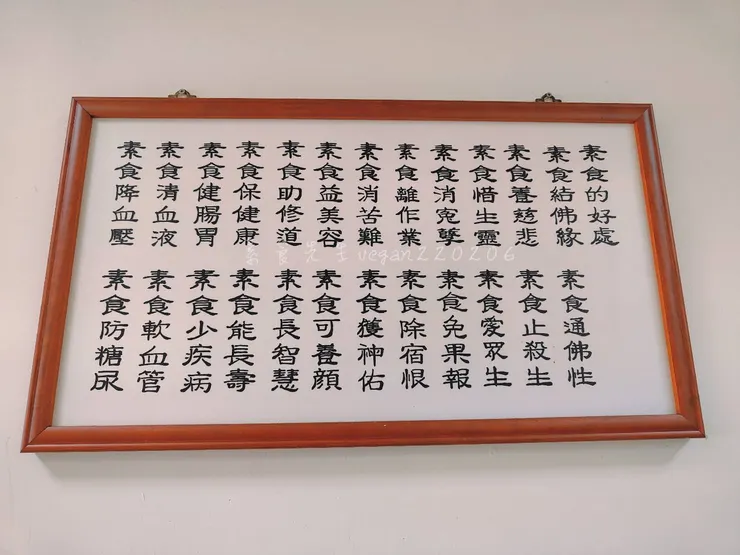 素食的好處
素食結佛緣
素食養慈悲
素食惜生靈
素食消寃孽
素食離作業
素食消苦難
素食益美容
素食助修道
素食保健康
素食健腸胃
素食清血液
素食降血壓
素食通佛性
素食止殺生
素食愛眾生
素食免果報
素食除宿恨
素食獲神佑
素食可養顏
素食長智慧
素食能長壽
素食少疾病
素食軟血管
素食防糖尿
素食先生vegan220206